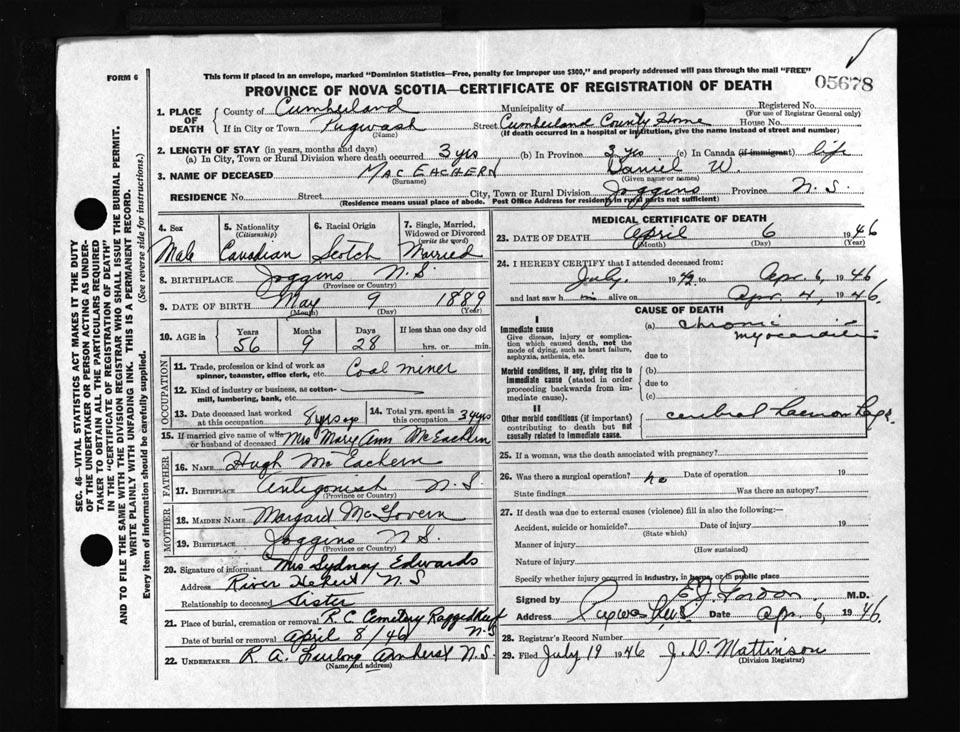 FORM 6
This form if placed in an envelope, marked "Dominion Statistics—Free, penalty for improper use $300," and properly addressed will pass through the mail "FREE"
05678
PROVINCE OF NOVA SCOTIA—CERTIFICATE OF REGISTRATION OF DEATH
1. PLACE OF DEATH
County of Cumberland Municipality of Registered No.
(For use of Registrar General only)
If in City or Town Pugwash Street Cumberland County Home House No.
(Name) (If death occurred in a hospital or institution, give the name instead of street and number)
2. LENGTH OF STAY (in years, months and days)
(a) In City, Town or Rural Division where death occurred 3 yrs (b) In Province 3 yrs (c) In Canada (if immigrant) life
3. NAME OF DECEASED MAC EACHERN Daniel W.
(Surname) (Given name or names)
RESIDENCE No. Street City, Town or Rural Division Joggins Province N.S.
(Residence means usual place of abode. Post Office Address for residents in rural parts not sufficient)
4. Sex Male
5. Nationality (Citizenship) Canadian
6. Racial Origin Scotch
7. Single, Married, Widowed or Divorced (write the word) Married
8. BIRTHPLACE Joggins N.S.
(Province or Country)
9. DATE OF BIRTH May 9 1889
(Month) (Day) (Year)
10. AGE in Years Months Days If less than one day old
56 9 28 hrs. or min.
OCCUPATION
11. Trade, profession or kind of work as spinner, teamster, office clerk, etc. Coal miner
12. Kind of industry or business, as cotton-mill, lumbering, bank, etc.
13. Date deceased last worked at this occupation 8 yrs ago
14. Total yrs. spent in this occupation 34 yrs
15. If married give name of wife or husband of deceased Mrs Mary Ann McEachern
FATHER
16. NAME Hugh McEachern
17. BIRTHPLACE Antigonish N.S.
(Province or Country)
MOTHER
18. MAIDEN NAME Margaret McGovern
19. BIRTHPLACE Joggins N.S.
(Province or Country)
20. Signature of informant Mrs Sydney Edwards
Address River Hebert N.S
Relationship to deceased Sister
21. Place of burial, cremation or removal R.C. Cemetery Ragged Reef N.S
Date of burial or removal April 8/46
22. UNDERTAKER R. A. Furlong Amherst N.S.
(Name and address)
MEDICAL CERTIFICATE OF DEATH
23. DATE OF DEATH April 6 1946
(Month) (Day) (Year)
24. I HEREBY CERTIFY that I attended deceased from:
July. 1942 to Apr. 6, 1946
and last saw h im alive on Apr. 4, 1946.
CAUSE OF DEATH
I
Immediate cause
Give disease, injury or complication which caused death, not the mode of dying, such as heart failure, asphyxia, asthenia, etc.
(a) chronic myocarditis
due to
Morbid conditions, if any, giving rise to immediate cause (stated in order proceeding backwards from immediate cause).
(b)
due to
(c)
II
Other morbid conditions (if important) contributing to death but not causally related to immediate cause.
cerebral haemorrhage
25. If a woman, was the death associated with pregnancy?
26. Was there a surgical operation? no Date of operation 19
State findings Was there an autopsy?
27. If death was due to external causes (violence) fill in also the following:—
Accident, suicide or homicide? Date of injury 19
(State which)
Manner of injury
(How sustained)
Nature of injury
Specify whether injury occurred in industry, in home, or in public place
Signed by M.D.
Address Date Apr. 6, 1946
28. Registrar's Record Number
29. Filed July 19 1946 J. D. Mattinson
(Division Registrar)
SEC. 46—VITAL STATISTICS ACT MAKES IT THE DUTY
OF THE UNDERTAKER OR PERSON ACTING AS UNDER-
TAKER TO OBTAIN ALL THE PARTICULARS REQUIRED
IN THE "CERTIFICATE OF REGISTRATION OF DEATH"
AND TO FILE THE SAME WITH THE DIVISION REGISTRAR WHO SHALL ISSUE THE BURIAL PERMIT.
WRITE PLAINLY WITH UNFADING INK. THIS IS A PERMANENT RECORD.
Every item of information should be carefully supplied. (See reverse side for instructions.)